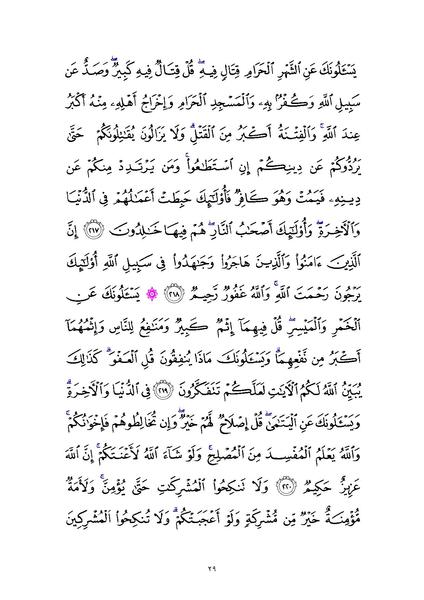 يَسْـَٔلُونَكَ عَنِ ٱلشَّهْرِ ٱلْحَرَامِ قِتَالٍ فِيهِ ۖ قُلْ قِتَالٌ فِيهِ كَبِيرٌ ۖ وَصَدٌّ عَن
سَبِيلِ ٱللَّهِ وَكُفْرٌۢ بِهِۦ وَٱلْمَسْجِدِ ٱلْحَرَامِ وَإِخْرَاجُ أَهْلِهِۦ مِنْهُ أَكْبَرُ
عِندَ ٱللَّهِ ۚ وَٱلْفِتْنَةُ أَكْبَرُ مِنَ ٱلْقَتْلِ ۗ وَلَا يَزَالُونَ يُقَـٰتِلُونَكُمْ حَتَّىٰ
يَرُدُّوكُمْ عَن دِينِكُمْ إِنِ ٱسْتَطَـٰعُوا۟ ۚ وَمَن يَرْتَدِدْ مِنكُمْ عَن
دِينِهِۦ فَيَمُتْ وَهُوَ كَافِرٌ فَأُو۟لَـٰٓئِكَ حَبِطَتْ أَعْمَـٰلُهُمْ فِى ٱلدُّنْيَا
وَٱلْـَٔاخِرَةِ ۖ وَأُو۟لَـٰٓئِكَ أَصْحَـٰبُ ٱلنَّارِ ۖ هُمْ فِيهَا خَـٰلِدُونَ ٢١٧ إِنَّ
ٱلَّذِينَ ءَامَنُوا۟ وَٱلَّذِينَ هَاجَرُوا۟ وَجَـٰهَدُوا۟ فِى سَبِيلِ ٱللَّهِ أُو۟لَـٰٓئِكَ
يَرْجُونَ رَحْمَتَ ٱللَّهِ ۚ وَٱللَّهُ غَفُورٌ رَّحِيمٌ ٢١٨ ۞ يَسْـَٔلُونَكَ عَنِ
ٱلْخَمْرِ وَٱلْمَيْسِرِ ۖ قُلْ فِيهِمَآ إِثْمٌ كَبِيرٌ وَمَنَـٰفِعُ لِلنَّاسِ وَإِثْمُهُمَآ
أَكْبَرُ مِن نَّفْعِهِمَا ۗ وَيَسْـَٔلُونَكَ مَاذَا يُنفِقُونَ قُلِ ٱلْعَفْوَ ۗ كَذَٰلِكَ
يُبَيِّنُ ٱللَّهُ لَكُمُ ٱلْـَٔايَـٰتِ لَعَلَّكُمْ تَتَفَكَّرُونَ ٢١٩ فِى ٱلدُّنْيَا وَٱلْـَٔاخِرَةِ ۗ
وَيَسْـَٔلُونَكَ عَنِ ٱلْيَتَـٰمَىٰ ۖ قُلْ إِصْلَاحٌ لَّهُمْ خَيْرٌ ۖ وَإِن تُخَالِطُوهُمْ فَإِخْوَٰنُكُمْ ۚ
وَٱللَّهُ يَعْلَمُ ٱلْمُفْسِدَ مِنَ ٱلْمُصْلِحِ ۚ وَلَوْ شَآءَ ٱللَّهُ لَأَعْنَتَكُمْ ۚ إِنَّ ٱللَّهَ
عَزِيزٌ حَكِيمٌ ٢٢٠ وَلَا تَنكِحُوا۟ ٱلْمُشْرِكَـٰتِ حَتَّىٰ يُؤْمِنَّ ۚ وَلَأَمَةٌ
مُّؤْمِنَةٌ خَيْرٌ مِّن مُّشْرِكَةٍ وَلَوْ أَعْجَبَتْكُمْ ۗ وَلَا تُنكِحُوا۟ ٱلْمُشْرِكِينَ
٢٩